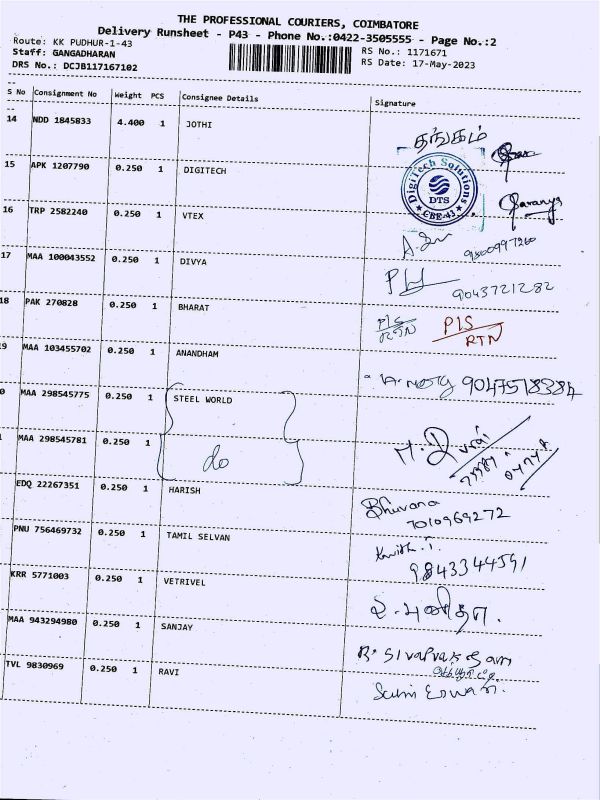 THE PROFESSIONAL COURIERS, COIMBATORE
Delivery Runsheet - P43 - Phone No.:0422-3505555 - Page No.:2
Route: KK PUDHUR-1-43
RS No.: 1171671
Staff: GANGADHARAN
RS Date: 17-May-2023
DRS No.: DCJB117167102
S No Consignment No Weight PCS Consignee Details Signature
14 NDD 1845833 4.400 1 JOTHI
தங்கம்
15 APK 1207790 0.250 1 DIGITECH
DigiTech Solutions
DTS
CBE-43
16 TRP 2582240 0.250 1 VTEX
Saranya
17 MAA 100043552 0.250 1 DIVYA
9043721282
18 PAK 270828 0.250 1 BHARAT
P/S
RTN
P/S
RTN
19 MAA 103455702 0.250 1 ANANDHAM
9047518384
0 MAA 298545775 0.250 1 STEEL WORLD
MAA 298545781 0.250 1 do
EDQ 22267351 0.250 1 HARISH
Bhuvana
7010969272
PNU 756469732 0.250 1 TAMIL SELVAN
9843344591
KRR 5771003 0.250 1 VETRIVEL
MAA 943294980 0.250 1 SANJAY
TVL 9830969 0.250 1 RAVI